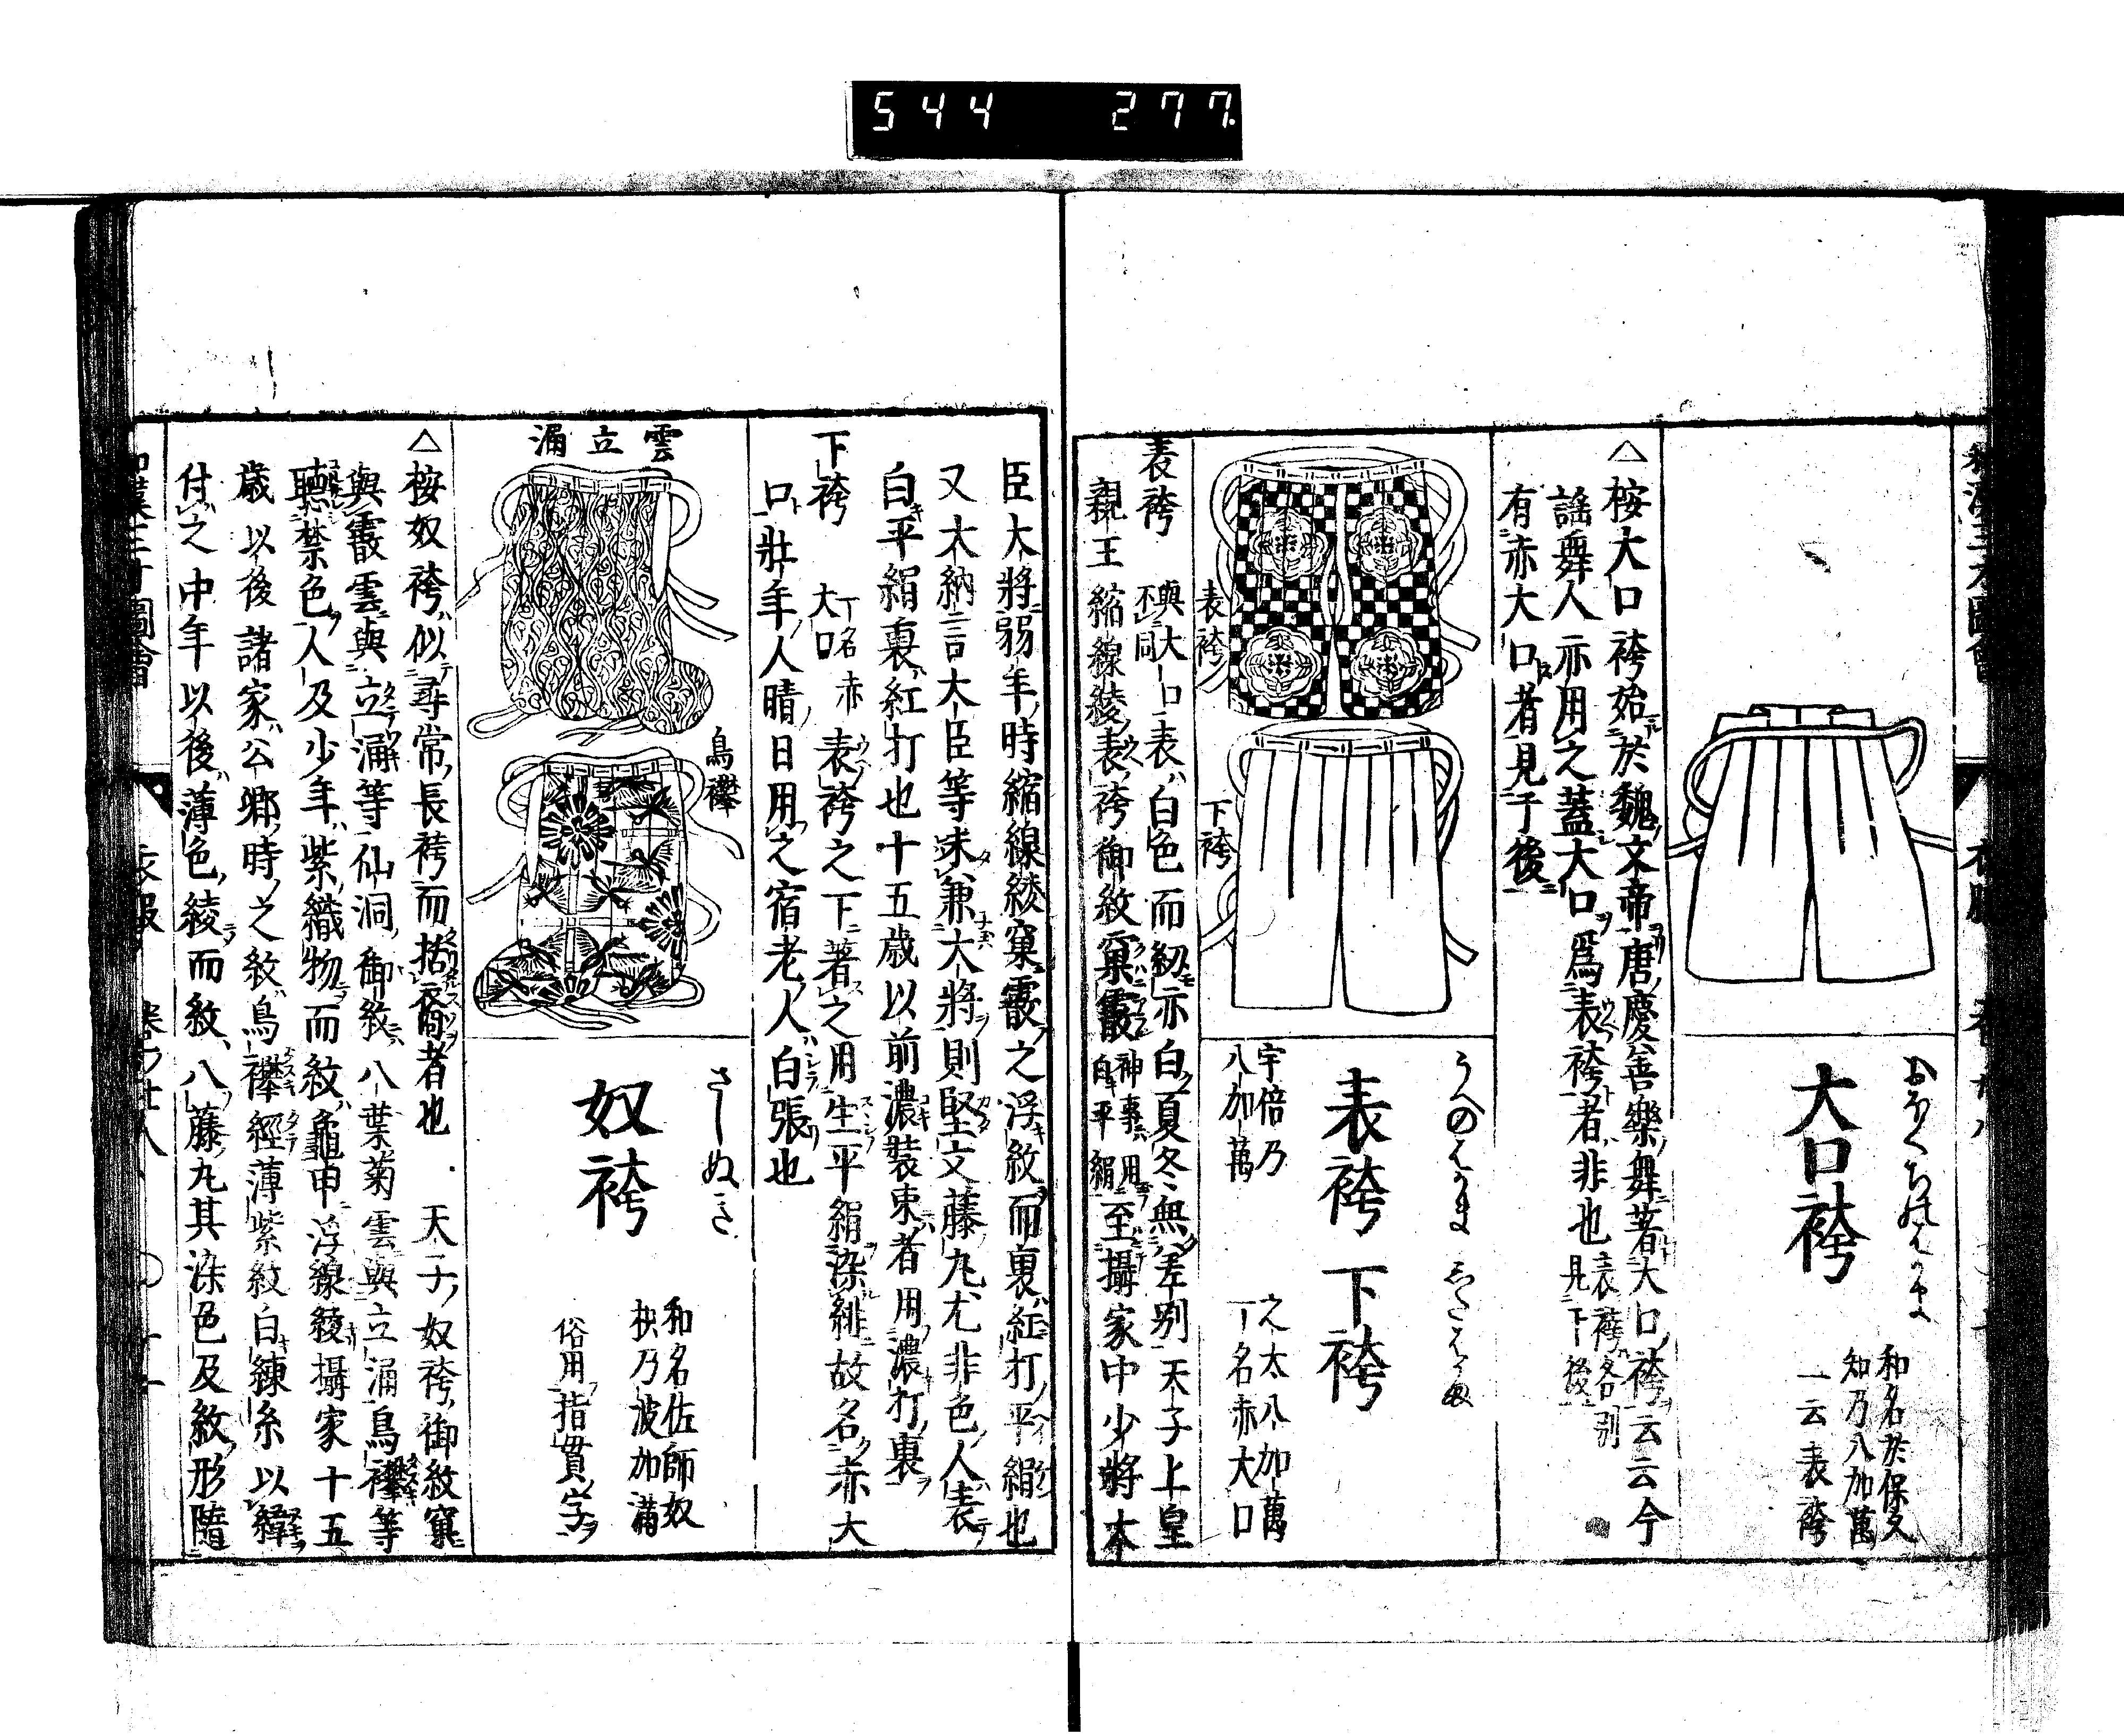 544 277
おほくちのはかま
大口袴
和名於保久
知乃八加萬
一云表袴
△桉大口袴始於魏文帝唐慶善樂舞著大口袴云云今
謡舞人亦用之蓋大口爲表袴者非也
表袴各別
見下後
有赤大口者見于後
表袴
下袴
うへのはかま したはかま
表袴 下袴
宇倍乃
八加萬
之太八加萬
一名赤大口
表袴
與大口
不同
表白色而裏亦白夏冬無差別天子上皇
親王縮線綾表袴御紋窠霰
神事用
白平絹
至攝家中少將本
臣大將弱年時縮線綾窠霰之浮紋而裏紅打平絹也
又大納言大臣等未兼大將則堅文藤丸尤非色人表
白平絹裏紅打也十五歳以前濃裝束者用濃打裏
下袴
一名赤
大口
表袴之下著之用生平絹染緋故名赤大
口壯年人晴日用之宿老人白張也
雲立涌
鳥襷
さしぬき
奴袴
和名佐師奴
枳乃波加滿
俗用指貫字
△桉奴袴似尋常長袴而括裔者也 天子奴袴御紋窠
與霰雲與立涌等仙洞御紋八葉菊雲與立涌鳥襷等
聽禁色人及少年紫織物而紋龜甲浮線綾攝家十五
歳以後諸家公郷時之紋鳥襷經薄紫紋白練糸以緯
付之中年以後薄色綾而紋八藤丸其染色及紋形隨